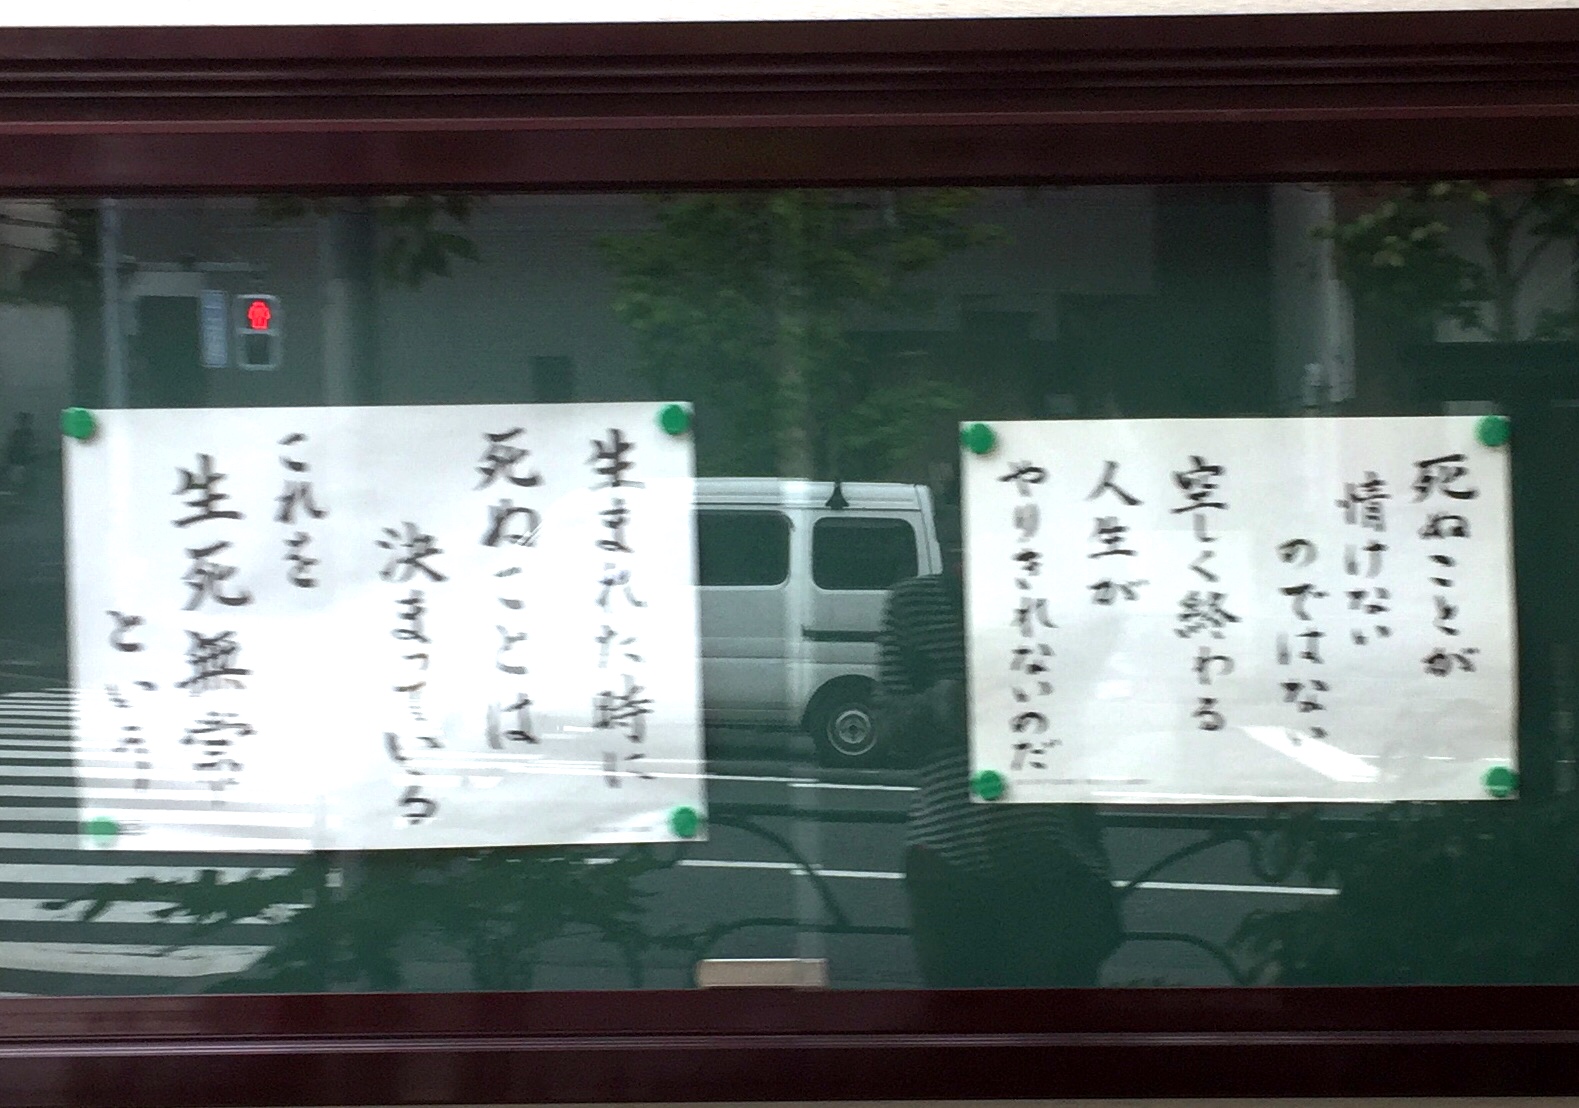 死ぬことが
情けない
のではない
空しく終わる
人生が
やりきれないのだ
生まれた時に
死ぬことは
決まっている
これを
生死無常
という